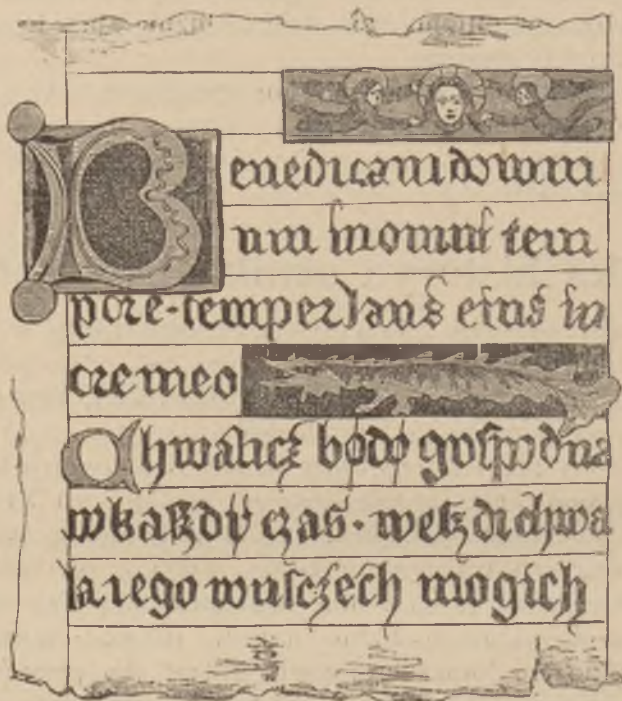 Benedicam domin
um in omni tem
pore·semper laus eius in
ore meo
Chwalicz bødø gospodna
wkaßdÿ czas· wetzdi chwa
la iego wusczech mogich